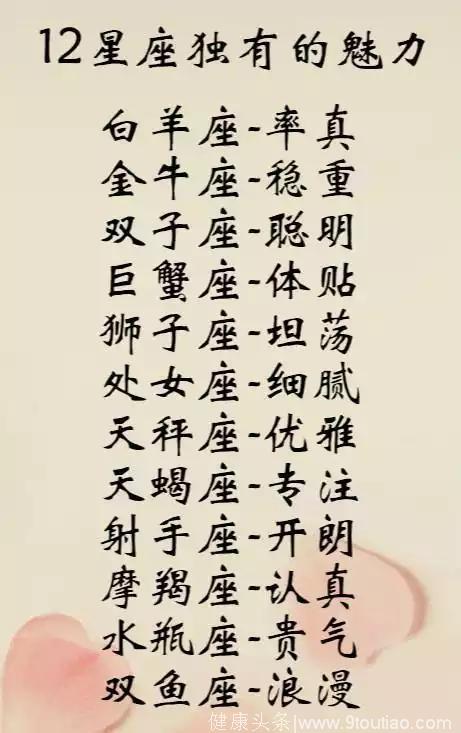 12星座独有的魅力
白羊座-率真
金牛座-稳重
双子座-聪明
巨蟹座-体贴
狮子座-坦荡
处女座-细腻
天秤座-优雅
天蝎座-专注
射手座-开朗
摩羯座-认真
水瓶座-贵气
双鱼座-浪漫
健康头条|www.9toutiao.com